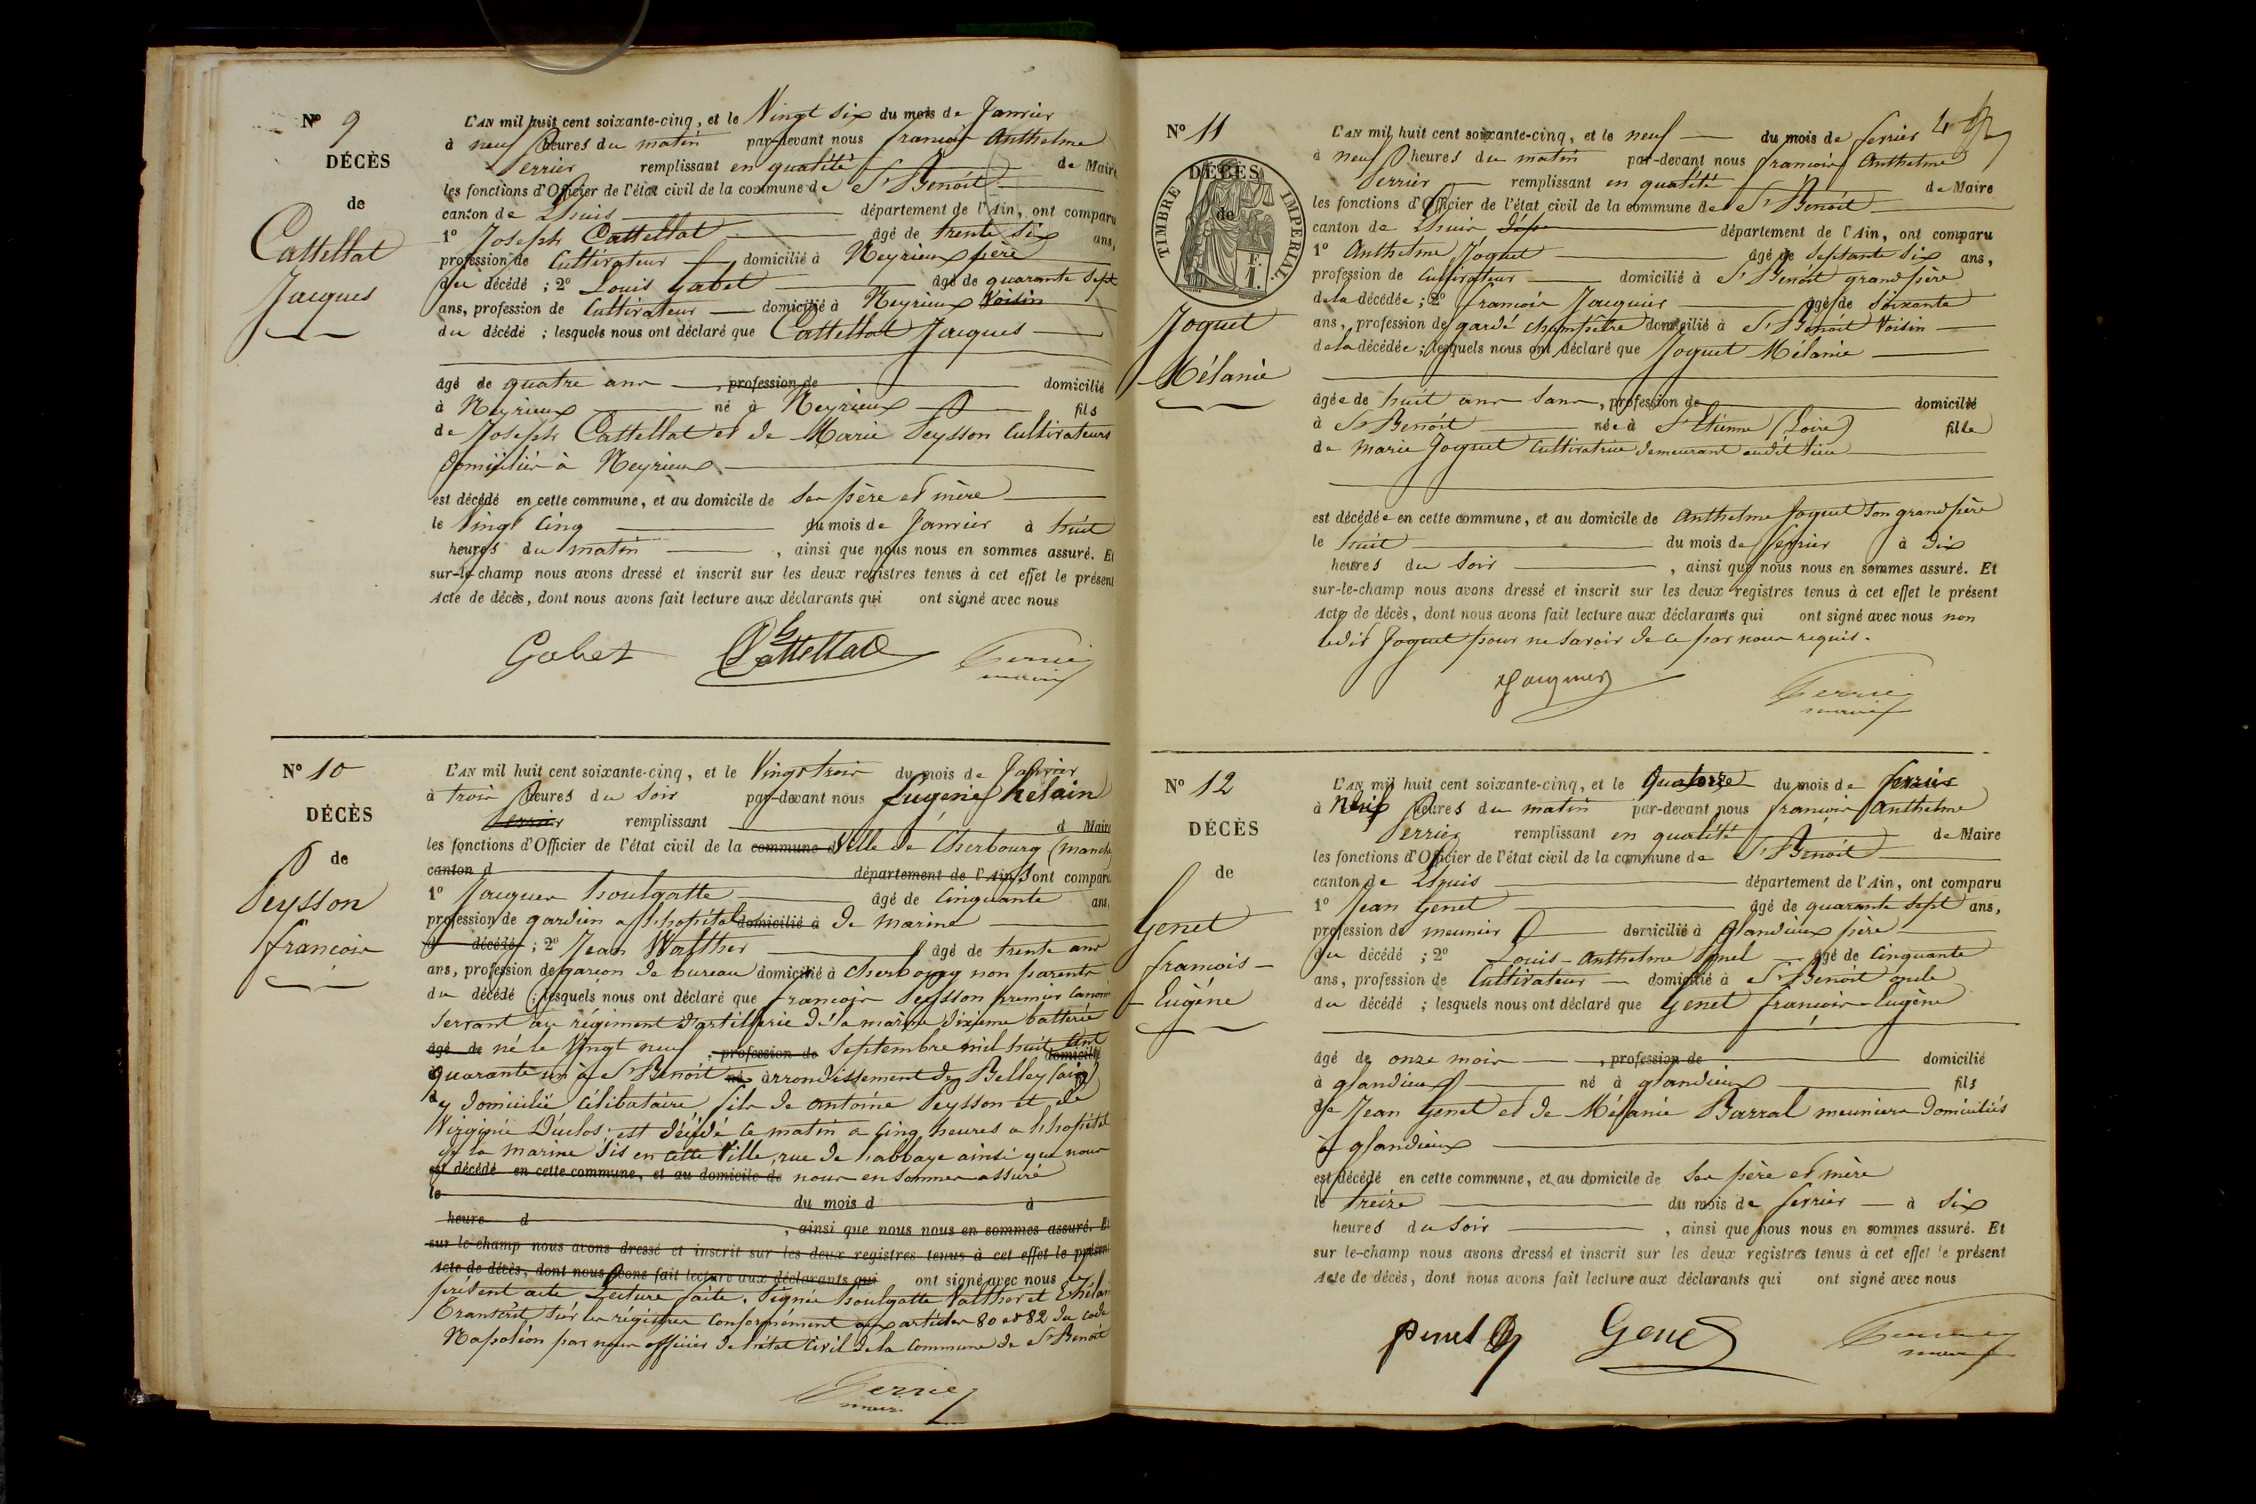 N° 9
DÉCÈS
de
Cattellat
Jacques
L'AN mil huit cent soixante-cinq, et le Vingt six du mois de Janvier
à neuf heures du matin par-devant nous françois Anthelme
Perrier remplissant en qualité de Maire
les fonctions d'Officier de l'état civil de la commune de St Benoit
canton de Lhuis département de l'Ain, ont comparu
1° Joseph Cattellat âgé de trente six ans,
profession de Cultivateur domicilié à Neyrieux père
du décédé ; 2° Louis Gabet âgé de quarante sept
ans, profession de Cultivateur domicilié à Neyrieux Voisin
du décédé ; lesquels nous ont déclaré que Cattellat Jacques
âgé de quatre ans , profession de domicilié
à Neyrieux né à Neyrieux fils
de Joseph Cattellat et de Marie Peysson Cultivateurs
domiciliés à Neyrieux
est décédé en cette commune, et au domicile de ses père et mère
le Vingt Cinq du mois de Janvier à huit
heures du matin , ainsi que nous nous en sommes assuré. Et
sur-le-champ nous avons dressé et inscrit sur les deux registres tenus à cet effet le présent
Acte de décès, dont nous avons fait lecture aux déclarants qui ont signé avec nous
Gabet Cattellat Perrier
maire
N° 10
DÉCÈS
de
Peysson
françois
L'AN mil huit cent soixante-cinq, et le Vingt trois du mois de Janvier
à trois heures du soir par-devant nous Eugène Chelain
Perrier remplissant d Maire
les fonctions d'Officier de l'état civil de la commune d Ville de Cherbourg (manche
canton d département de l'Ain, ont comparu
1° Jacques houlgatte âgé de Cinquante ans,
profession de gardien a l'hopital domicilié à de marine
d décédé ; 2° Jean Walther âgé de trente ans
ans, profession de garçon de bureau domicilié à Cherbourg non parents
du décédé ; lesquels nous ont déclaré que françois Peysson premier Canonnier
servant au régiment d'artillerie de la marine dixieme batterie
âgé de né le Vingt neuf , profession de Septembre mil huit Cent domicilié
quarante un à St Benoit né arrondissement de Belley (ain)
y domicilié Célibataire, fils de antoine Peysson et de
Virginie Duclos. est décédé ce matin a cinq heures a l'hopital
de la marine sis en cette Ville, rue de l'abbaye ainsi que nous
est décédé en cette commune, et au domicile de nous en sommes assuré
le du mois d à
heure d , ainsi que nous nous en sommes assuré. Et
sur-le-champ nous avons dressé et inscrit sur les deux registres tenus à cet effet le présent
Acte de décès, dont nous avons fait lecture aux déclarants qui ont signé avec nous le
présent acte Lecture faite. Signée houlgatte Valther et Chélain
Transcrit sur les régistres Conformément aux articles 80 et 82 du Code
Napoléon par nous officier de l'état Civil de la Commune de St Benoit
Perrier
maire
N° 11
DÉCÈS
de
TIMBRE IMPÉRIAL
Joguet
Mélanie
L'AN mil huit cent soixante-cinq, et le neuf du mois de fevrier
à neuf heures du matin par-devant nous françois Anthelme
Perrier remplissant en qualité de Maire
les fonctions d'Officier de l'état civil de la commune de St Benoit
canton de Lhuis département de l'Ain, ont comparu
1° Anthelme Joguet âgé de Septante Six ans,
profession de Cultivateur domicilié à St Benoit grand père
de la décédée ; 2° françois Jacquier âgé de Soixante
ans, profession de garde champêtre domicilié à St Benoit Voisin
de la décédée ; lesquels nous ont déclaré que Joguet Mélanie
âgée de huit ans sans , profession de domicilié
à St Benoit née à St Etienne (Loire) fille
de Marie Joguet Cultivatrice demeurant audit lieu
est décédée en cette commune, et au domicile de Anthelme Joguet son grand père
le huit du mois de fevrier à dix
heures du soir , ainsi que nous nous en sommes assuré. Et
sur-le-champ nous avons dressé et inscrit sur les deux registres tenus à cet effet le présent
Acte de décès, dont nous avons fait lecture aux déclarants qui ont signé avec nous non
ledit Joguet pour ne savoir de ce par nous requis.
Jacquier Perrier
maire
N° 12
DÉCÈS
de
Genet
françois-
Eugéne
L'AN mil huit cent soixante-cinq, et le Quatorze du mois de fevrier
à Neuf heures du matin par-devant nous françois Anthelme
Perrier remplissant en qualité de Maire
les fonctions d'Officier de l'état civil de la commune de St Benoit
canton de Lhuis département de l'Ain, ont comparu
1° Jean Genet âgé de quarante sept ans,
profession de meunier domicilié à Glandieux père
du décédé ; 2° Louis-Anthelme âgé de Cinquante
ans, profession de Cultivateur domicilié à St Benoit oncle
du décédé ; lesquels nous ont déclaré que Genet françois-Eugène
âgé de onze mois , profession de domicilié
à glandieux né à glandieux fils
de Jean Genet et de Mélanie Barral meuniers domiciliés
à glandieux
est décédé en cette commune, et au domicile de ses père et mère
le treize du mois de fevrier à Six
heures du soir , ainsi que nous nous en sommes assuré. Et
sur le-champ nous avons dressé et inscrit sur les deux registres tenus à cet effet le présent
Acte de décès, dont nous avons fait lecture aux déclarants qui ont signé avec nous
Genet Perrier
maire